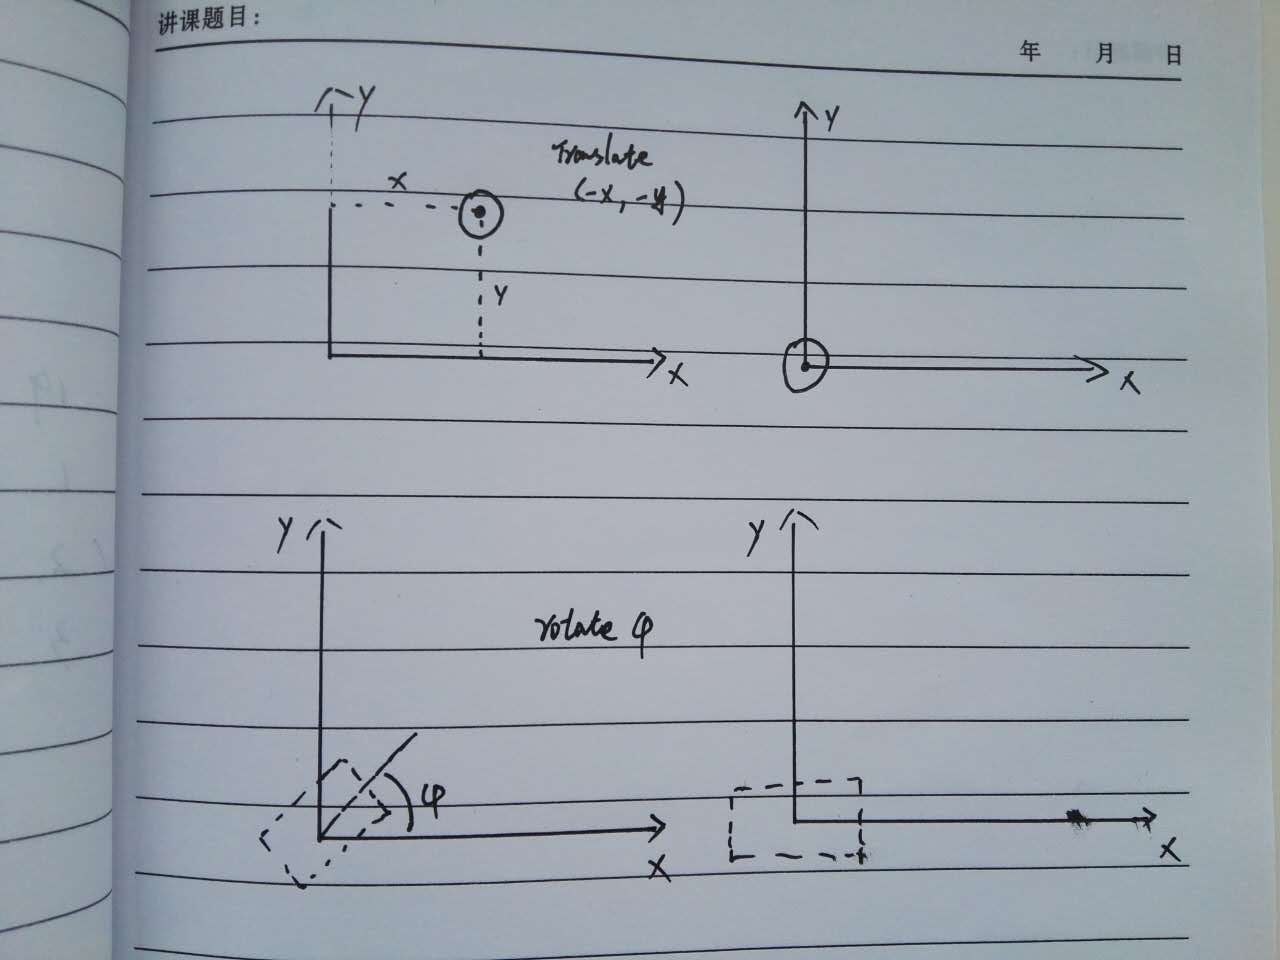 讲课题目：
年 月 日
Y
Y
Translate
x
(-x, -y)
Y
X
X
Y
Y
rotate φ
φ
X
X